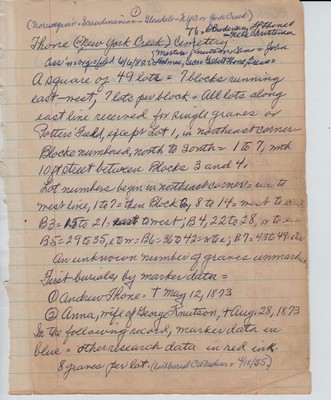 ①
(Norwegian = Scandinavian = Blanket = N.Y.C. or York Creek)
Thone (New York Creek) Cemetery
A square of 49 lots = 7 blocks running
east-west, 7 lots per block = All lots along
east line reserved for single graves or
Potters Field, except Lot 1, in northeast corner
Blocks numbered, north to south = 1 to 7, with
10 ft street between Blocks 3 and 4.
Lot numbers begin in northeast corner = run to
west line, 1 to 7 = then Block 2, 8 to 14 = west to east
B3 = 15 to 21 = east to west; B4, 22 to 28, w to e =
B5 = 29 to 35, e to w = B6 = 36 to 42 = w to e; B7 = 43 to 49, e to
An unknown number of graves unmarked
First burials by marker data =
① Andrew Thone = † May 12, 1873
② Anna, wife of George Knutson, † Aug. 28, 1873
In the following record, marker data in
blue = other research data in red ink.
8 graves per lot = 4/10/55)